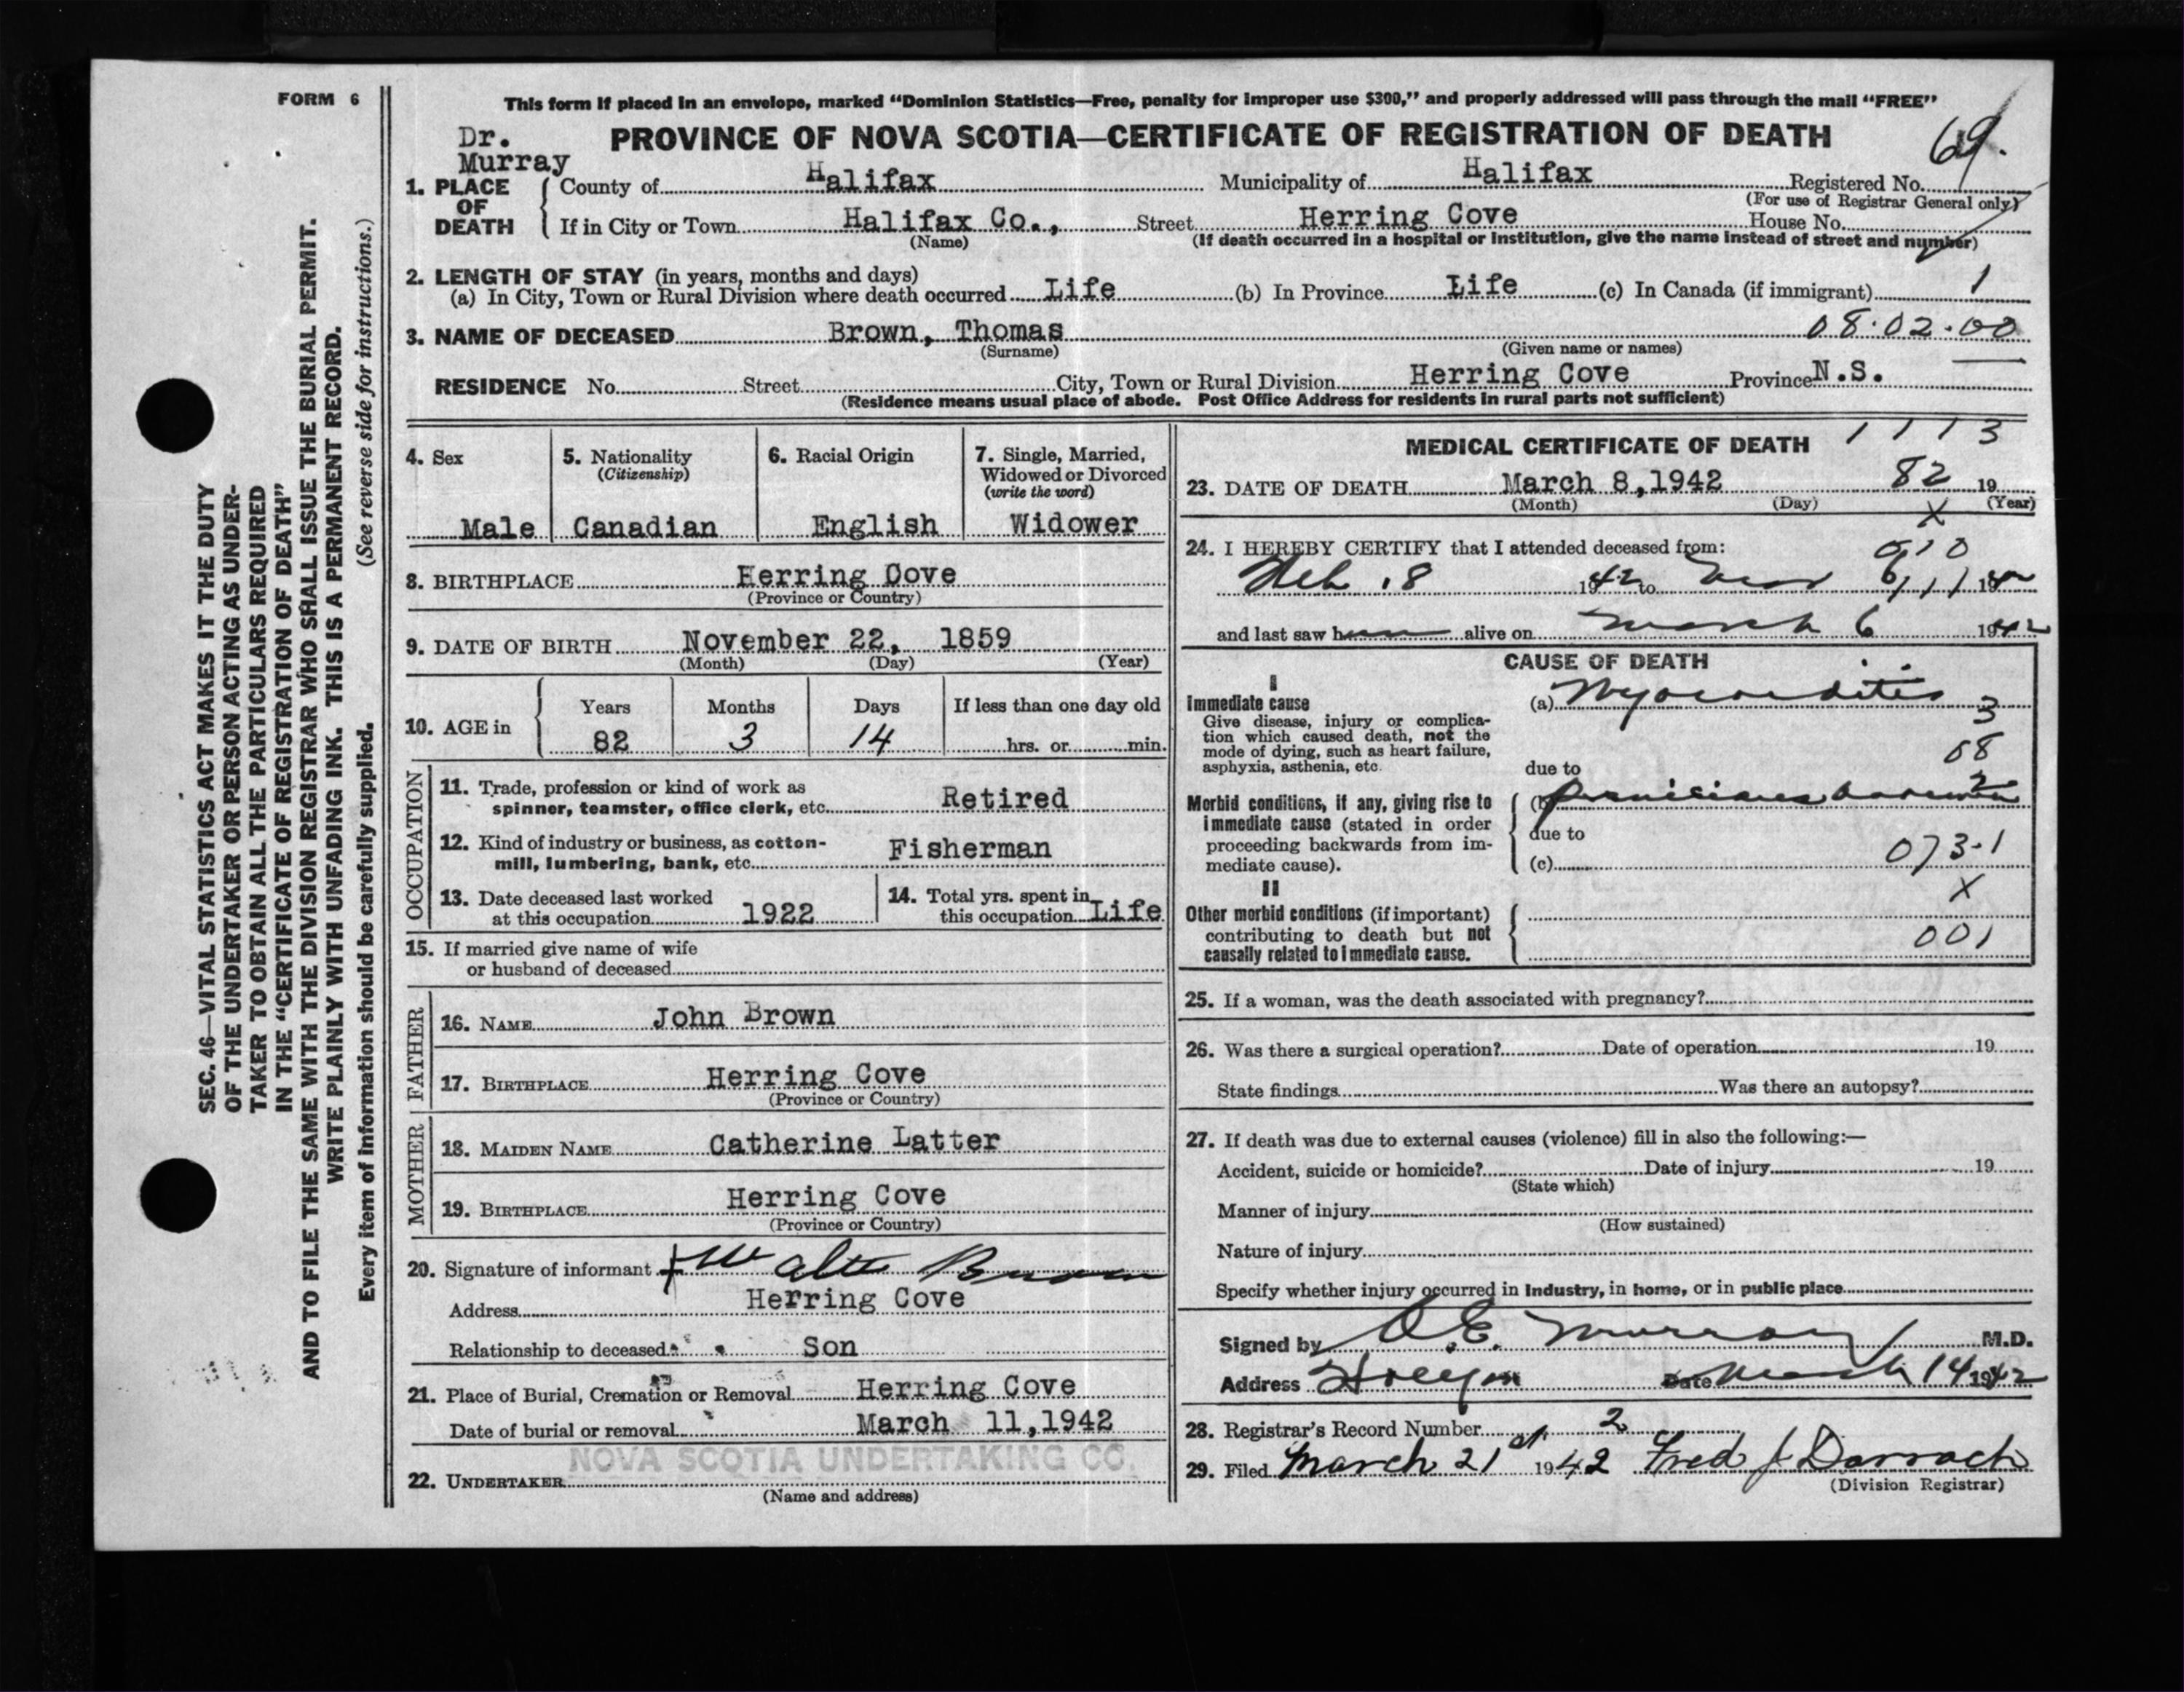 FORM 6
This form if placed in an envelope, marked “Dominion Statistics—Free, penalty for improper use $300,” and properly addressed will pass through the mail “FREE”
Dr. Murray
PROVINCE OF NOVA SCOTIA—CERTIFICATE OF REGISTRATION OF DEATH
69.
1. PLACE OF DEATH
County of Halifax Municipality of Halifax Registered No.
(For use of Registrar General only)
If in City or Town Halifax Co., Street Herring Cove House No.
(Name) (If death occurred in a hospital or institution, give the name instead of street and number)
2. LENGTH OF STAY (in years, months and days)
(a) In City, Town or Rural Division where death occurred Life (b) In Province Life (c) In Canada (if immigrant) 1
3. NAME OF DECEASED Brown, Thomas 08·02·00
(Surname) (Given name or names)
RESIDENCE No. Street City, Town or Rural Division Herring Cove Province N.S.
(Residence means usual place of abode. Post Office Address for residents in rural parts not sufficient)
4. Sex
Male
5. Nationality
(Citizenship)
Canadian
6. Racial Origin
English
7. Single, Married, Widowed or Divorced
(write the word)
Widower
8. BIRTHPLACE Herring Cove
(Province or Country)
9. DATE OF BIRTH November 22, 1859
(Month) (Day) (Year)
10. AGE in
Years Months Days If less than one day old
82 3 14 hrs. or min.
OCCUPATION
11. Trade, profession or kind of work as
spinner, teamster, office clerk, etc. Retired
12. Kind of industry or business, as cotton-
mill, lumbering, bank, etc. Fisherman
13. Date deceased last worked
at this occupation 1922
14. Total yrs. spent in
this occupation Life
15. If married give name of wife
or husband of deceased
FATHER
16. NAME John Brown
17. BIRTHPLACE Herring Cove
(Province or Country)
MOTHER
18. MAIDEN NAME Catherine Latter
19. BIRTHPLACE Herring Cove
(Province or Country)
20. Signature of informant Walter Brown
Address Herring Cove
Relationship to deceased Son
21. Place of Burial, Cremation or Removal Herring Cove
Date of burial or removal March 11,1942
NOVA SCOTIA UNDERTAKING CO.
22. UNDERTAKER
(Name and address)
MEDICAL CERTIFICATE OF DEATH 1113
23. DATE OF DEATH March 8,1942 82 19
(Month) (Day) (Year)
X
24. I HEREBY CERTIFY that I attended deceased from:
Feb. 8 1942 to Mar 6 1942
and last saw him alive on March 6 1942
CAUSE OF DEATH
I
Immediate cause
Give disease, injury or complica-
tion which caused death, not the
mode of dying, such as heart failure,
asphyxia, asthenia, etc.
(a) Myocarditis
3
08
due to
Morbid conditions, if any, giving rise to
immediate cause (stated in order
proceeding backwards from im-
mediate cause).
(b) Pernicious anaemia
due to
(c) 073-1
II
X
Other morbid conditions (if important)
contributing to death but not
causally related to immediate cause.
001
25. If a woman, was the death associated with pregnancy?
26. Was there a surgical operation? Date of operation 19
State findings Was there an autopsy?
27. If death was due to external causes (violence) fill in also the following:—
Accident, suicide or homicide? Date of injury 19
(State which)
Manner of injury
(How sustained)
Nature of injury
Specify whether injury occurred in industry, in home, or in public place
Signed by Murray M.D.
Address Date March 14 1942
28. Registrar’s Record Number 2
29. Filed March 21st 1942 Fred J Darrach
(Division Registrar)
SEC. 46—VITAL STATISTICS ACT MAKES IT THE DUTY
OF THE UNDERTAKER OR PERSON ACTING AS UNDER-
TAKER TO OBTAIN ALL THE PARTICULARS REQUIRED
IN THE “CERTIFICATE OF REGISTRATION OF DEATH”
AND TO FILE THE SAME WITH THE DIVISION REGISTRAR WHO SHALL ISSUE THE BURIAL PERMIT.
WRITE PLAINLY WITH UNFADING INK. THIS IS A PERMANENT RECORD.
Every item of information should be carefully supplied. (See reverse side for instructions.)